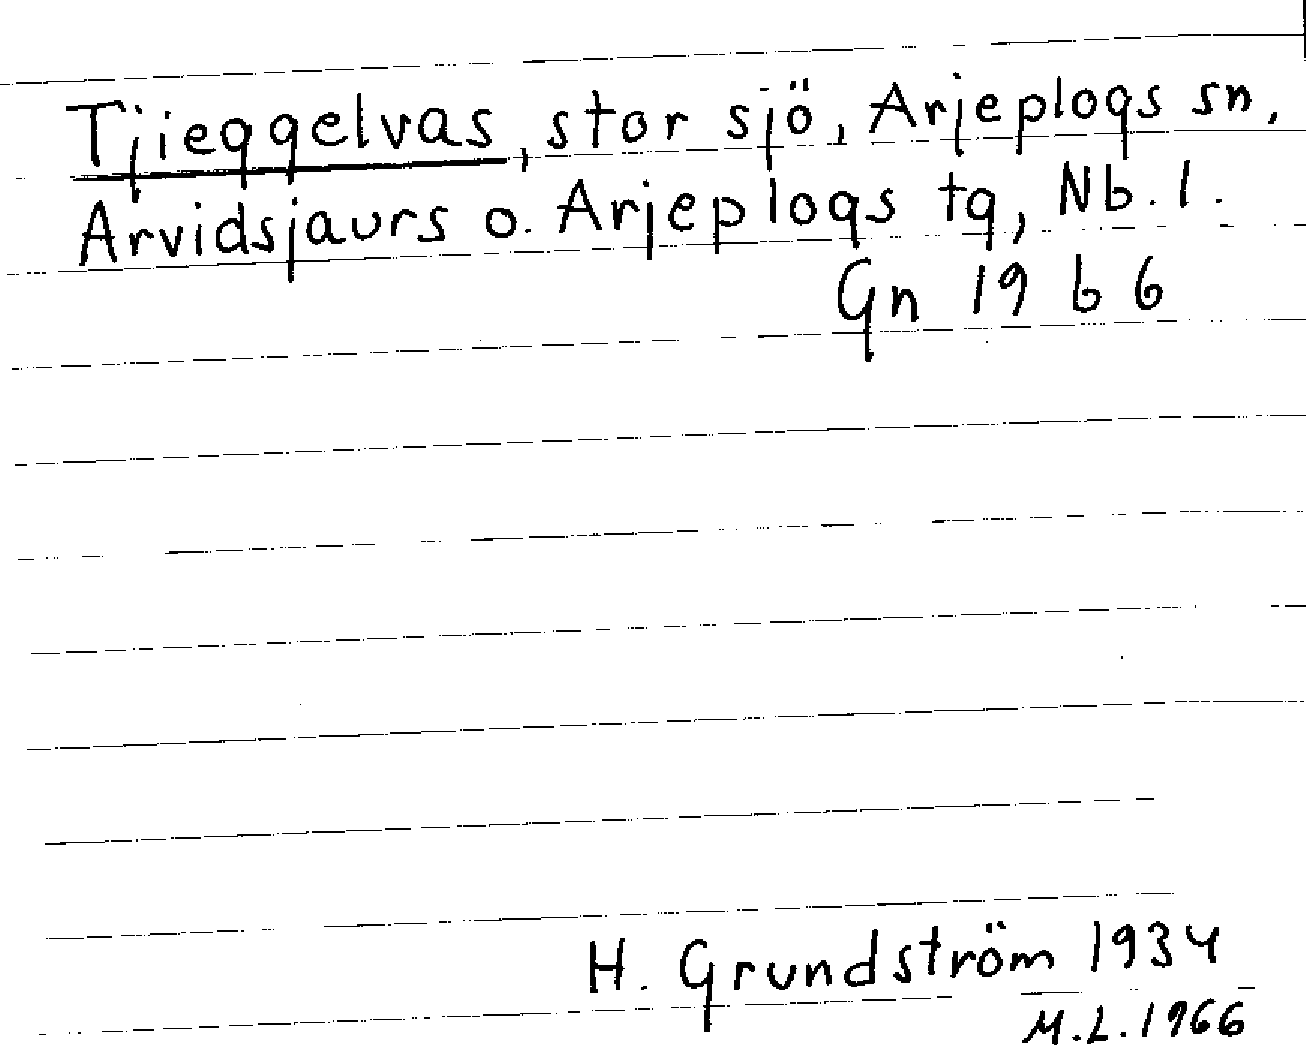 Tjieggelvas, stor sjö, Arjeplogs sn,
Arvidsjaurs o. Arjeplogs tg, Nb. l.
Gn 19 b 6
H. Grundström 1934
M.L. 1966